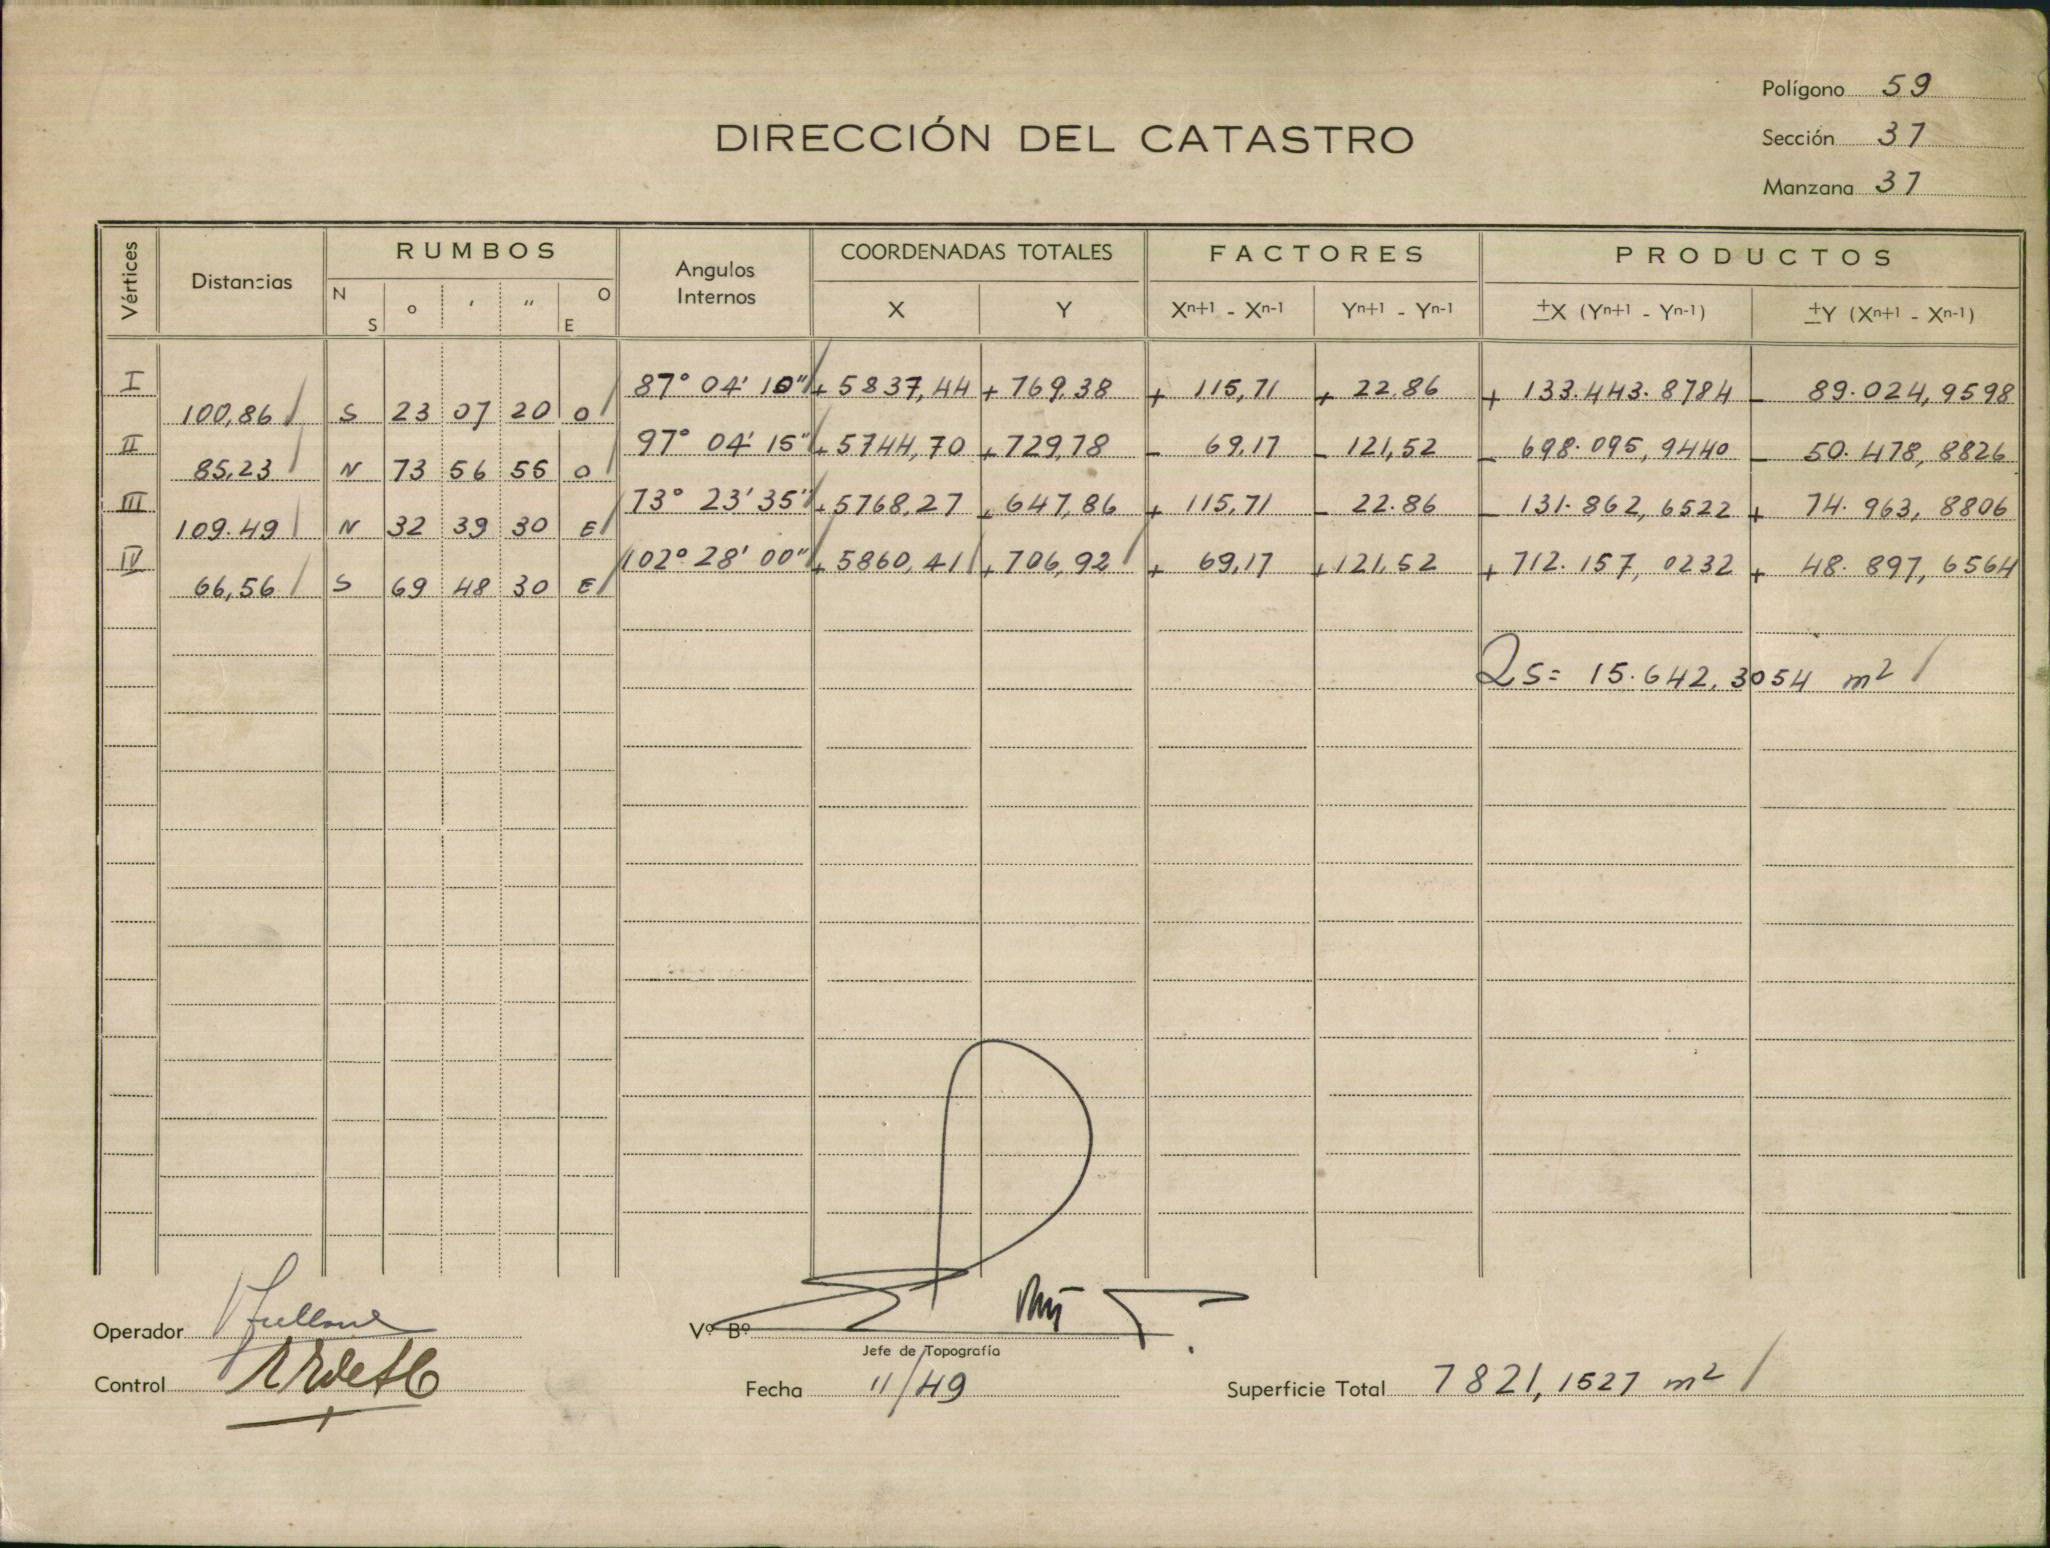 Polígono 59
DIRECCIÓN DEL CATASTRO
Sección 37
Manzana 37
Vértices Distancias RUMBOS Angulos Internos COORDENADAS TOTALES FACTORES PRODUCTOS
N S o ‚ „ E O X Y Xn+1 - Xn-1 Yn+1 - Yn-1 ±X (Yn+1 - Yn-1) ±Y (Xn+1 - Xn-1)
I 87° 04' 10" + 5837,44 + 769,38 + 115,71 + 22.86 + 133.443.8784 - 89.024,9598
100,86 S 23 07 20 O
II 97° 04' 15" + 5744,70 + 729,78 - 69,17 - 121,52 - 698.095,9440 - 50.478,8826
85,23 N 73 56 55 O
III 73° 23' 35" + 5768,27 + 647,86 + 115,71 - 22.86 - 131.862,6522 + 74.963,8806
109.49 N 32 39 30 E
IV 102° 28' 00" + 5860,41 + 706,92 + 69,17 + 121,52 + 712.157,0232 + 48.897,6564
66,56 S 69 48 30 E
2S= 15.642,3054 m2
Operador
Vº Bº
Jefe de Topografía
Control
Fecha 11/49
Superficie Total 7821,1527 m2